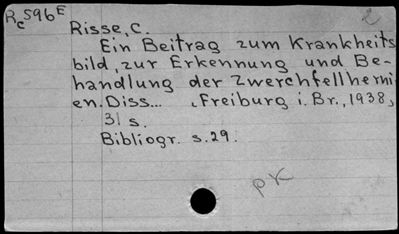 Rc596E
Risse, C.
Ein Beitrag zum Krankheits
bild, zur Erkennung und Be-
handlung der Zwerchfellherni
en. Diss... , Freiburg i. Br., 1938,
31 s.
Bibliogr. s. 29.
PK